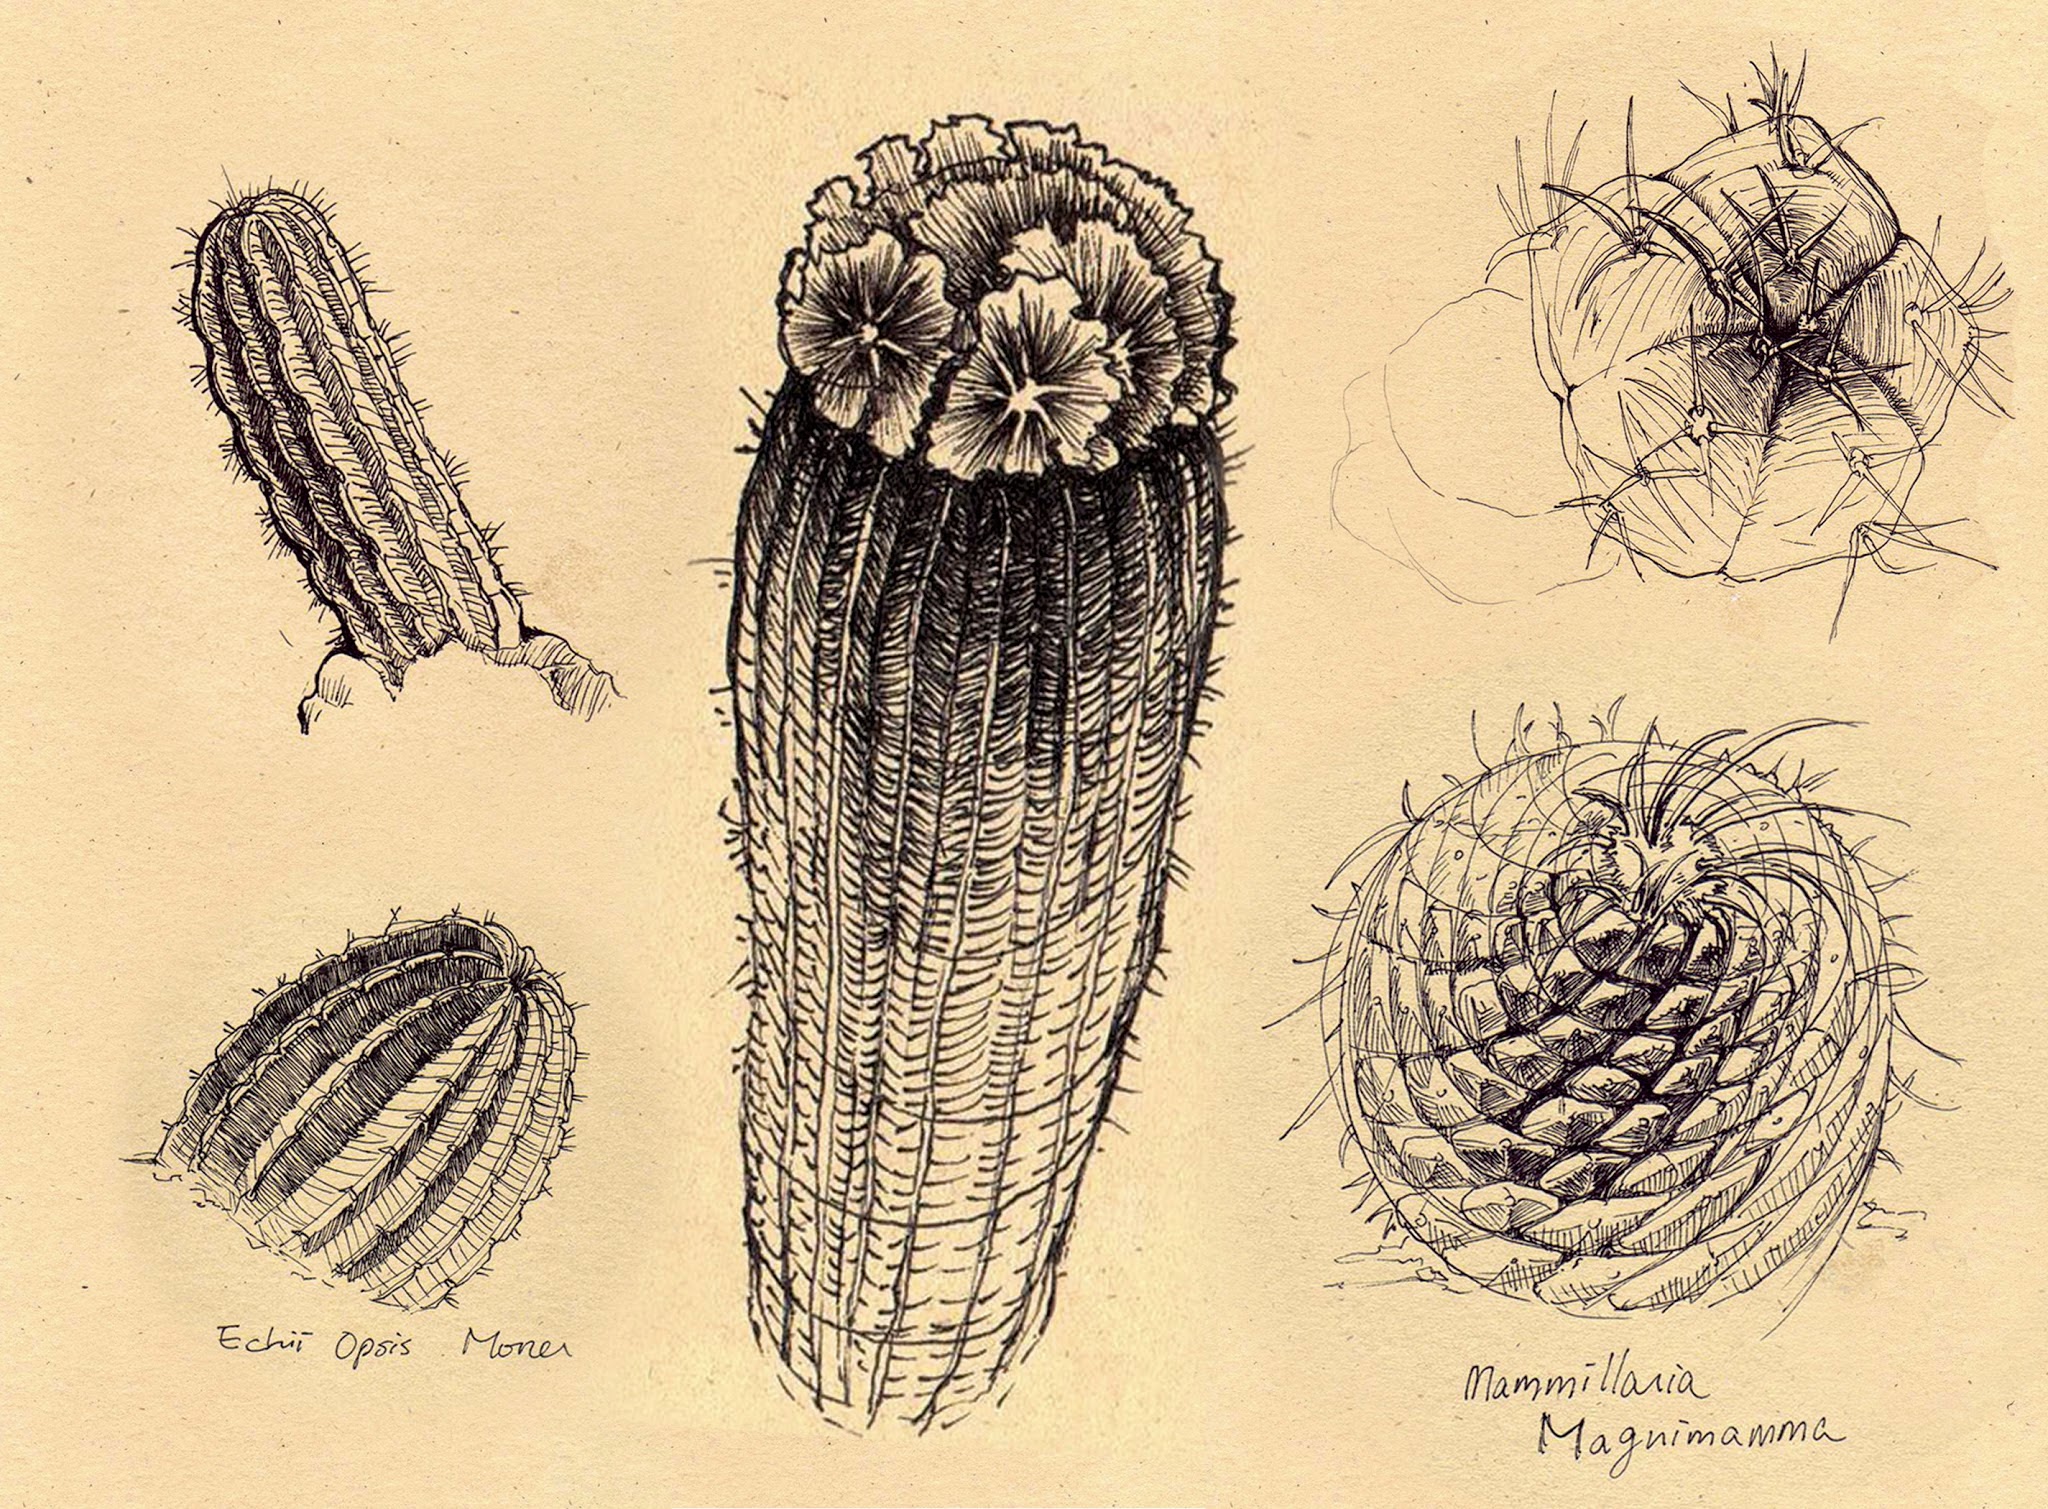 Echii Opsis Morier
Mammillaria
Magnimamma